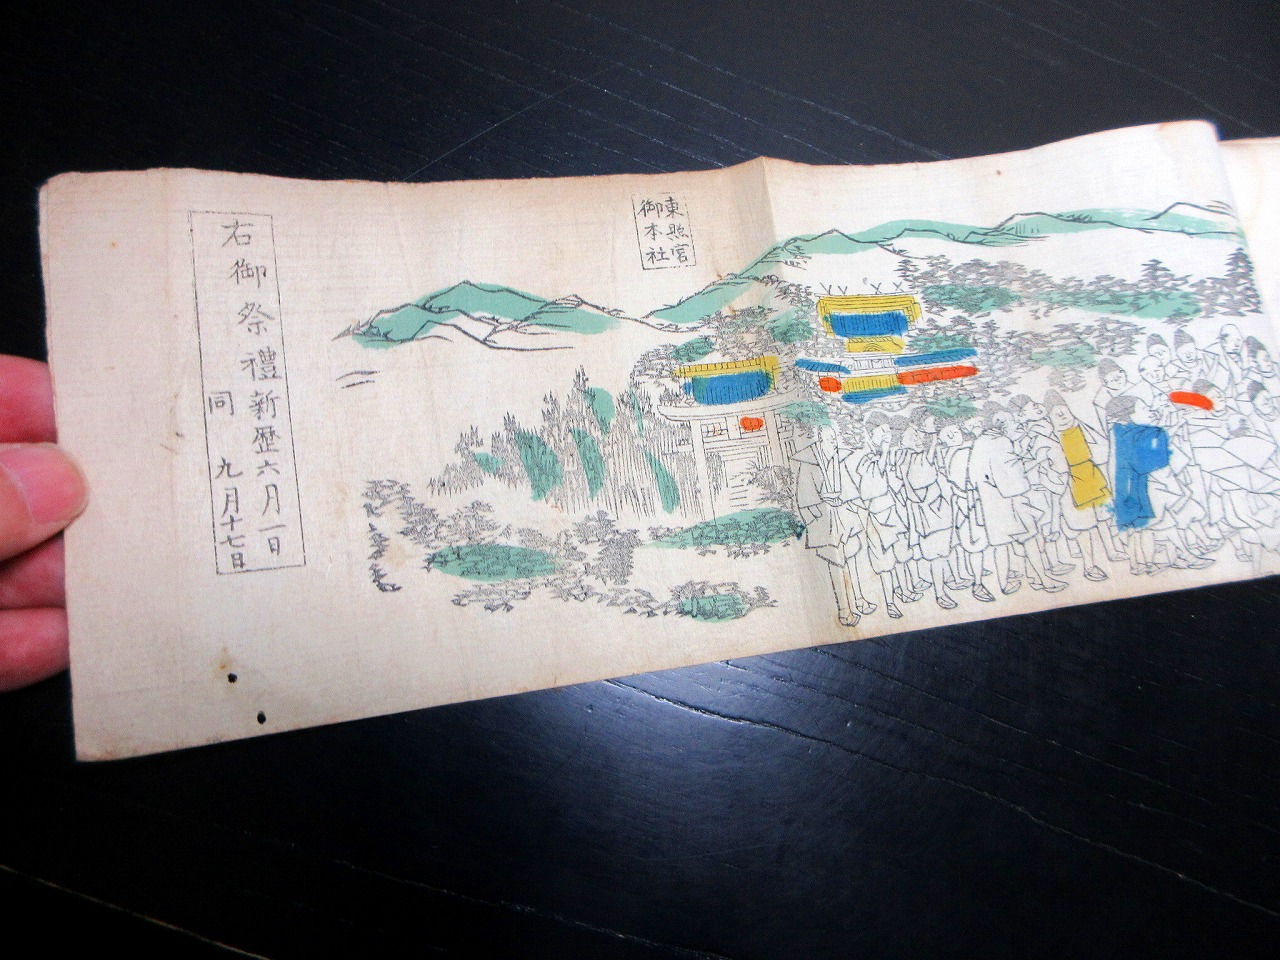 東照宮
御本社
右御祭禮新暦六月一日
同 九月十七日